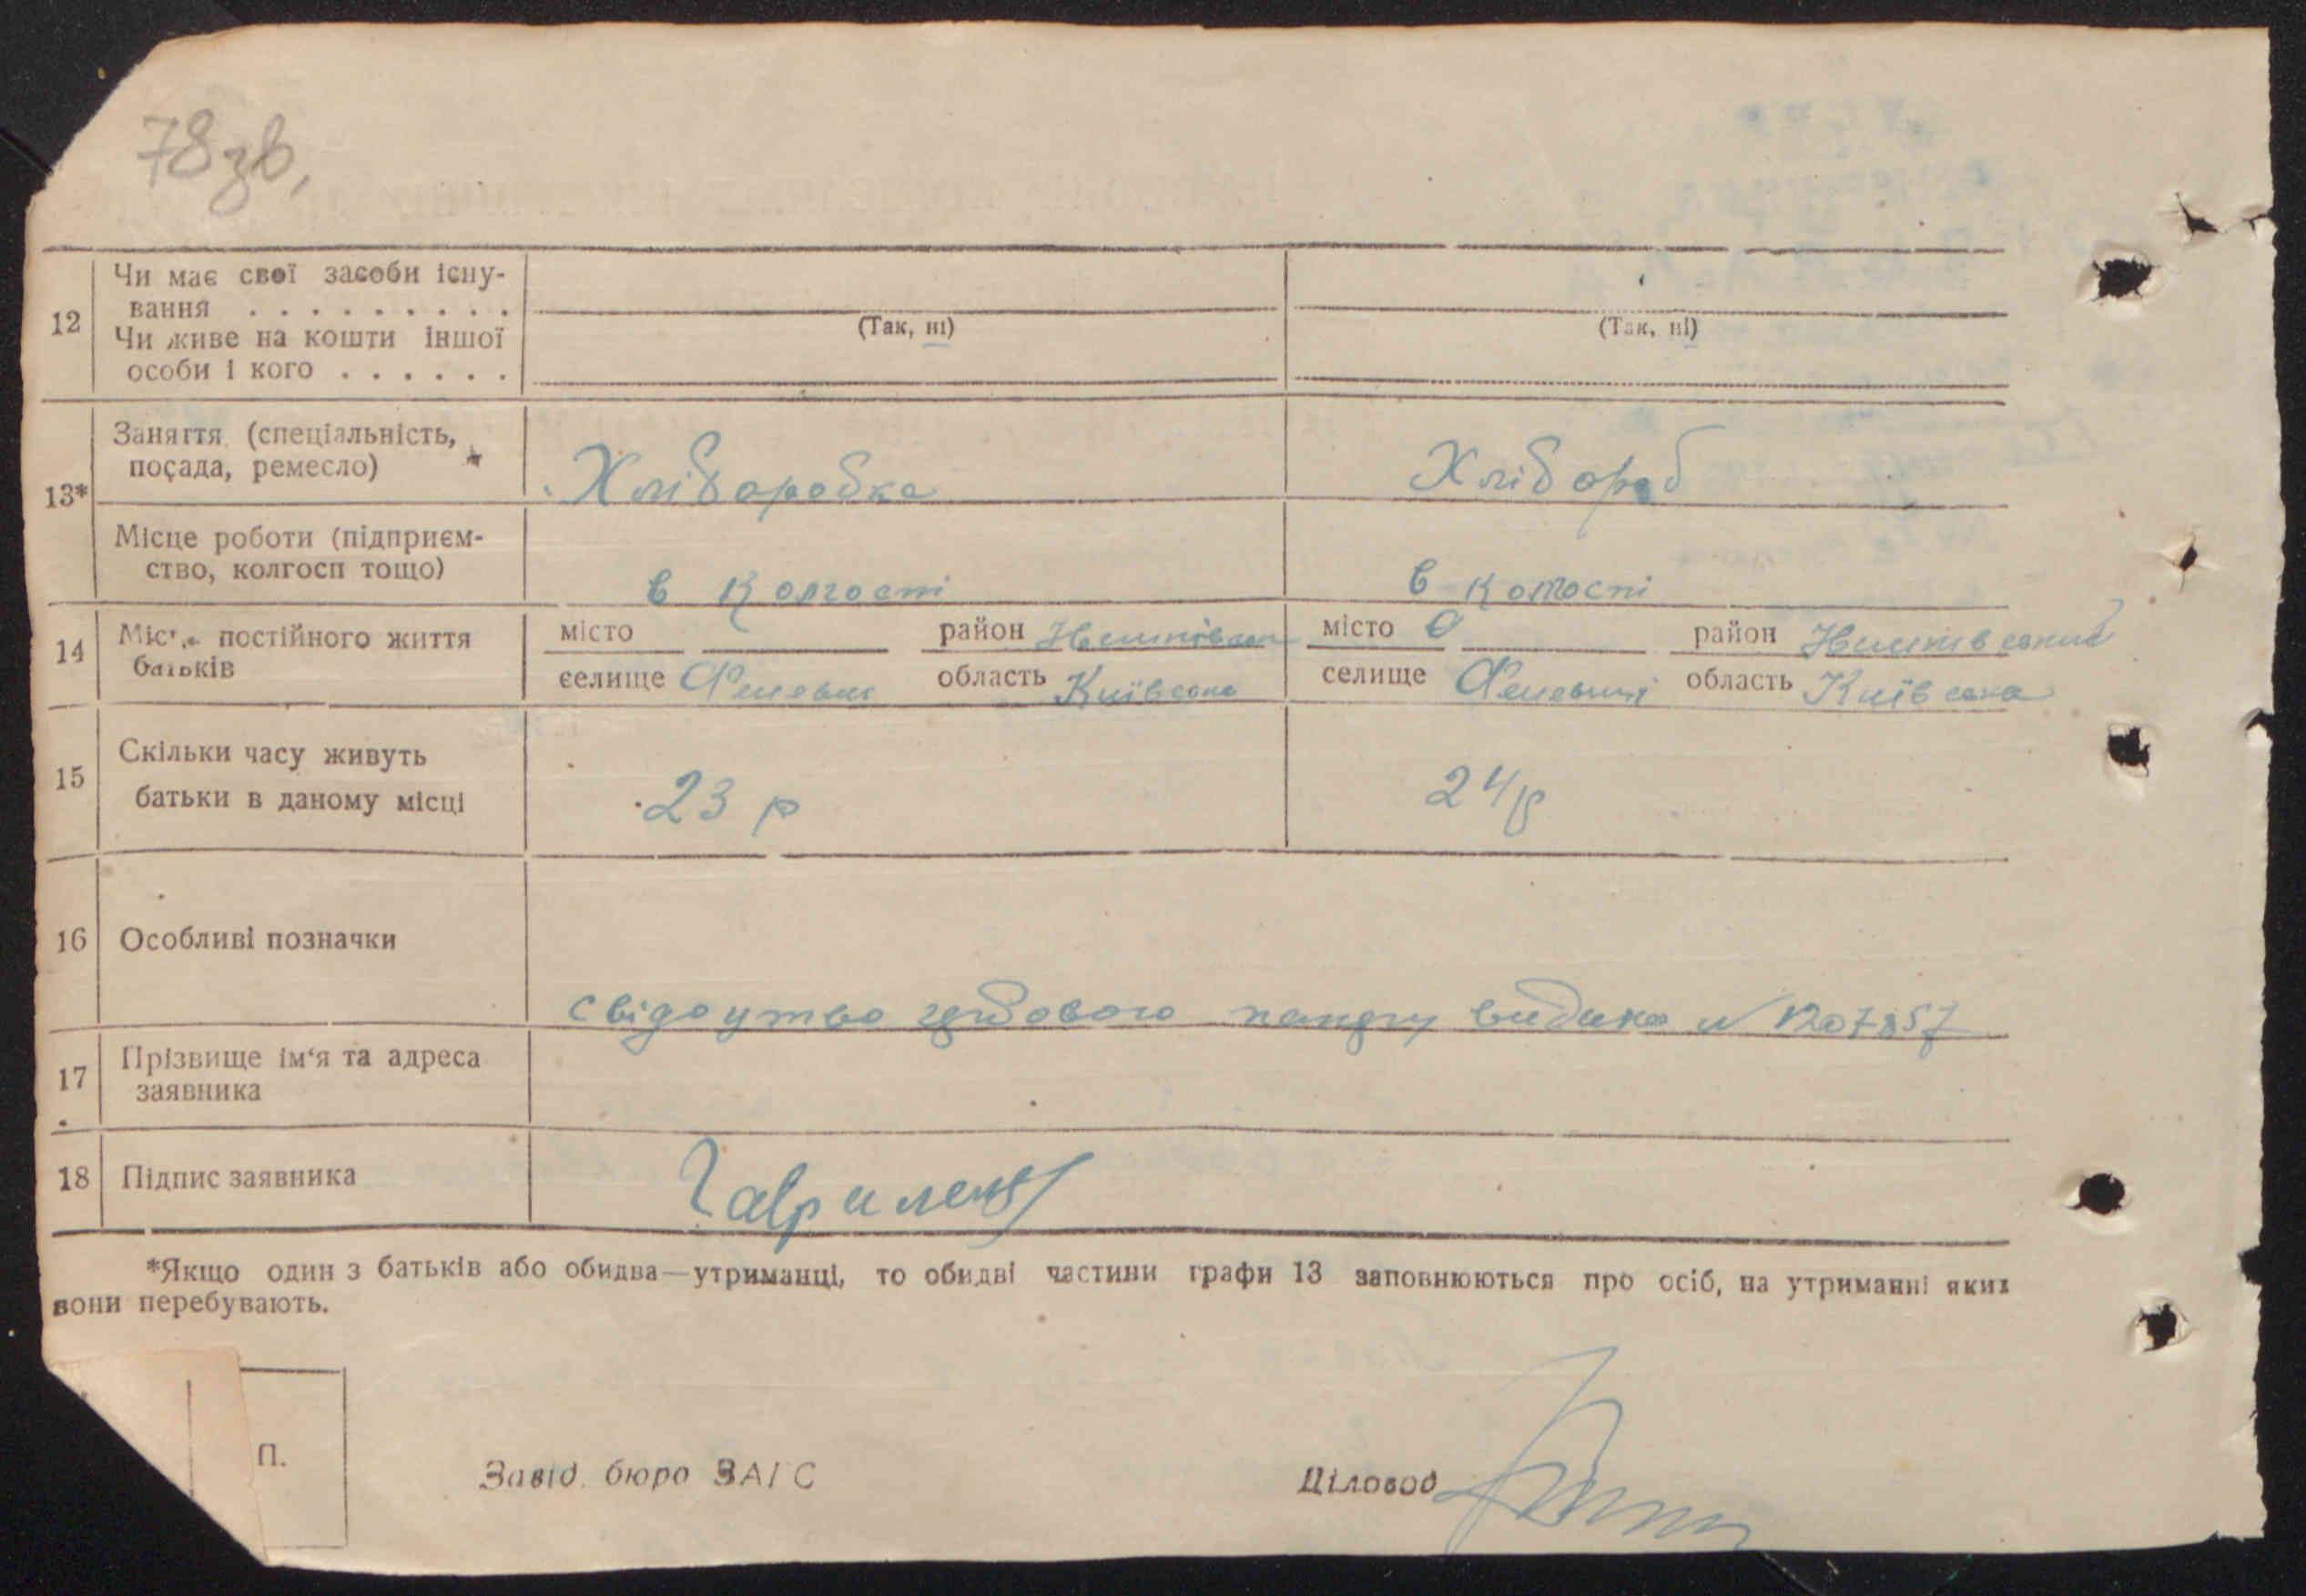 78 зв.
12 Чи має свої засоби існу-
вання . . . . . . . . .
(Так, ні) (Так, ні)
Чи живе на кошти іншої
особи і кого . . . . . .
13* Заняття (спеціальність,
посада, ремесло) Хліборобка Хлібороб
Місце роботи (підприєм-
ство, колгосп тощо) в колгоспі в колгоспі
14 Місце постійного життя
батьків
місто район місто район
селище область Київська селище область Київська
15 Скільки часу живуть
батьки в даному місці 23 р 24 р
16 Особливі позначки
свідоцтво видано №
17 Прізвище ім‘я та адреса
заявника
18 Підпис заявника Гавриленко
*Якщо один з батьків або обидва—утриманці, то обидві частини графи 13 заповнюються про осіб, на утриманні яких
вони перебувають.
П.
Завід. бюро ЗАГС Діловод